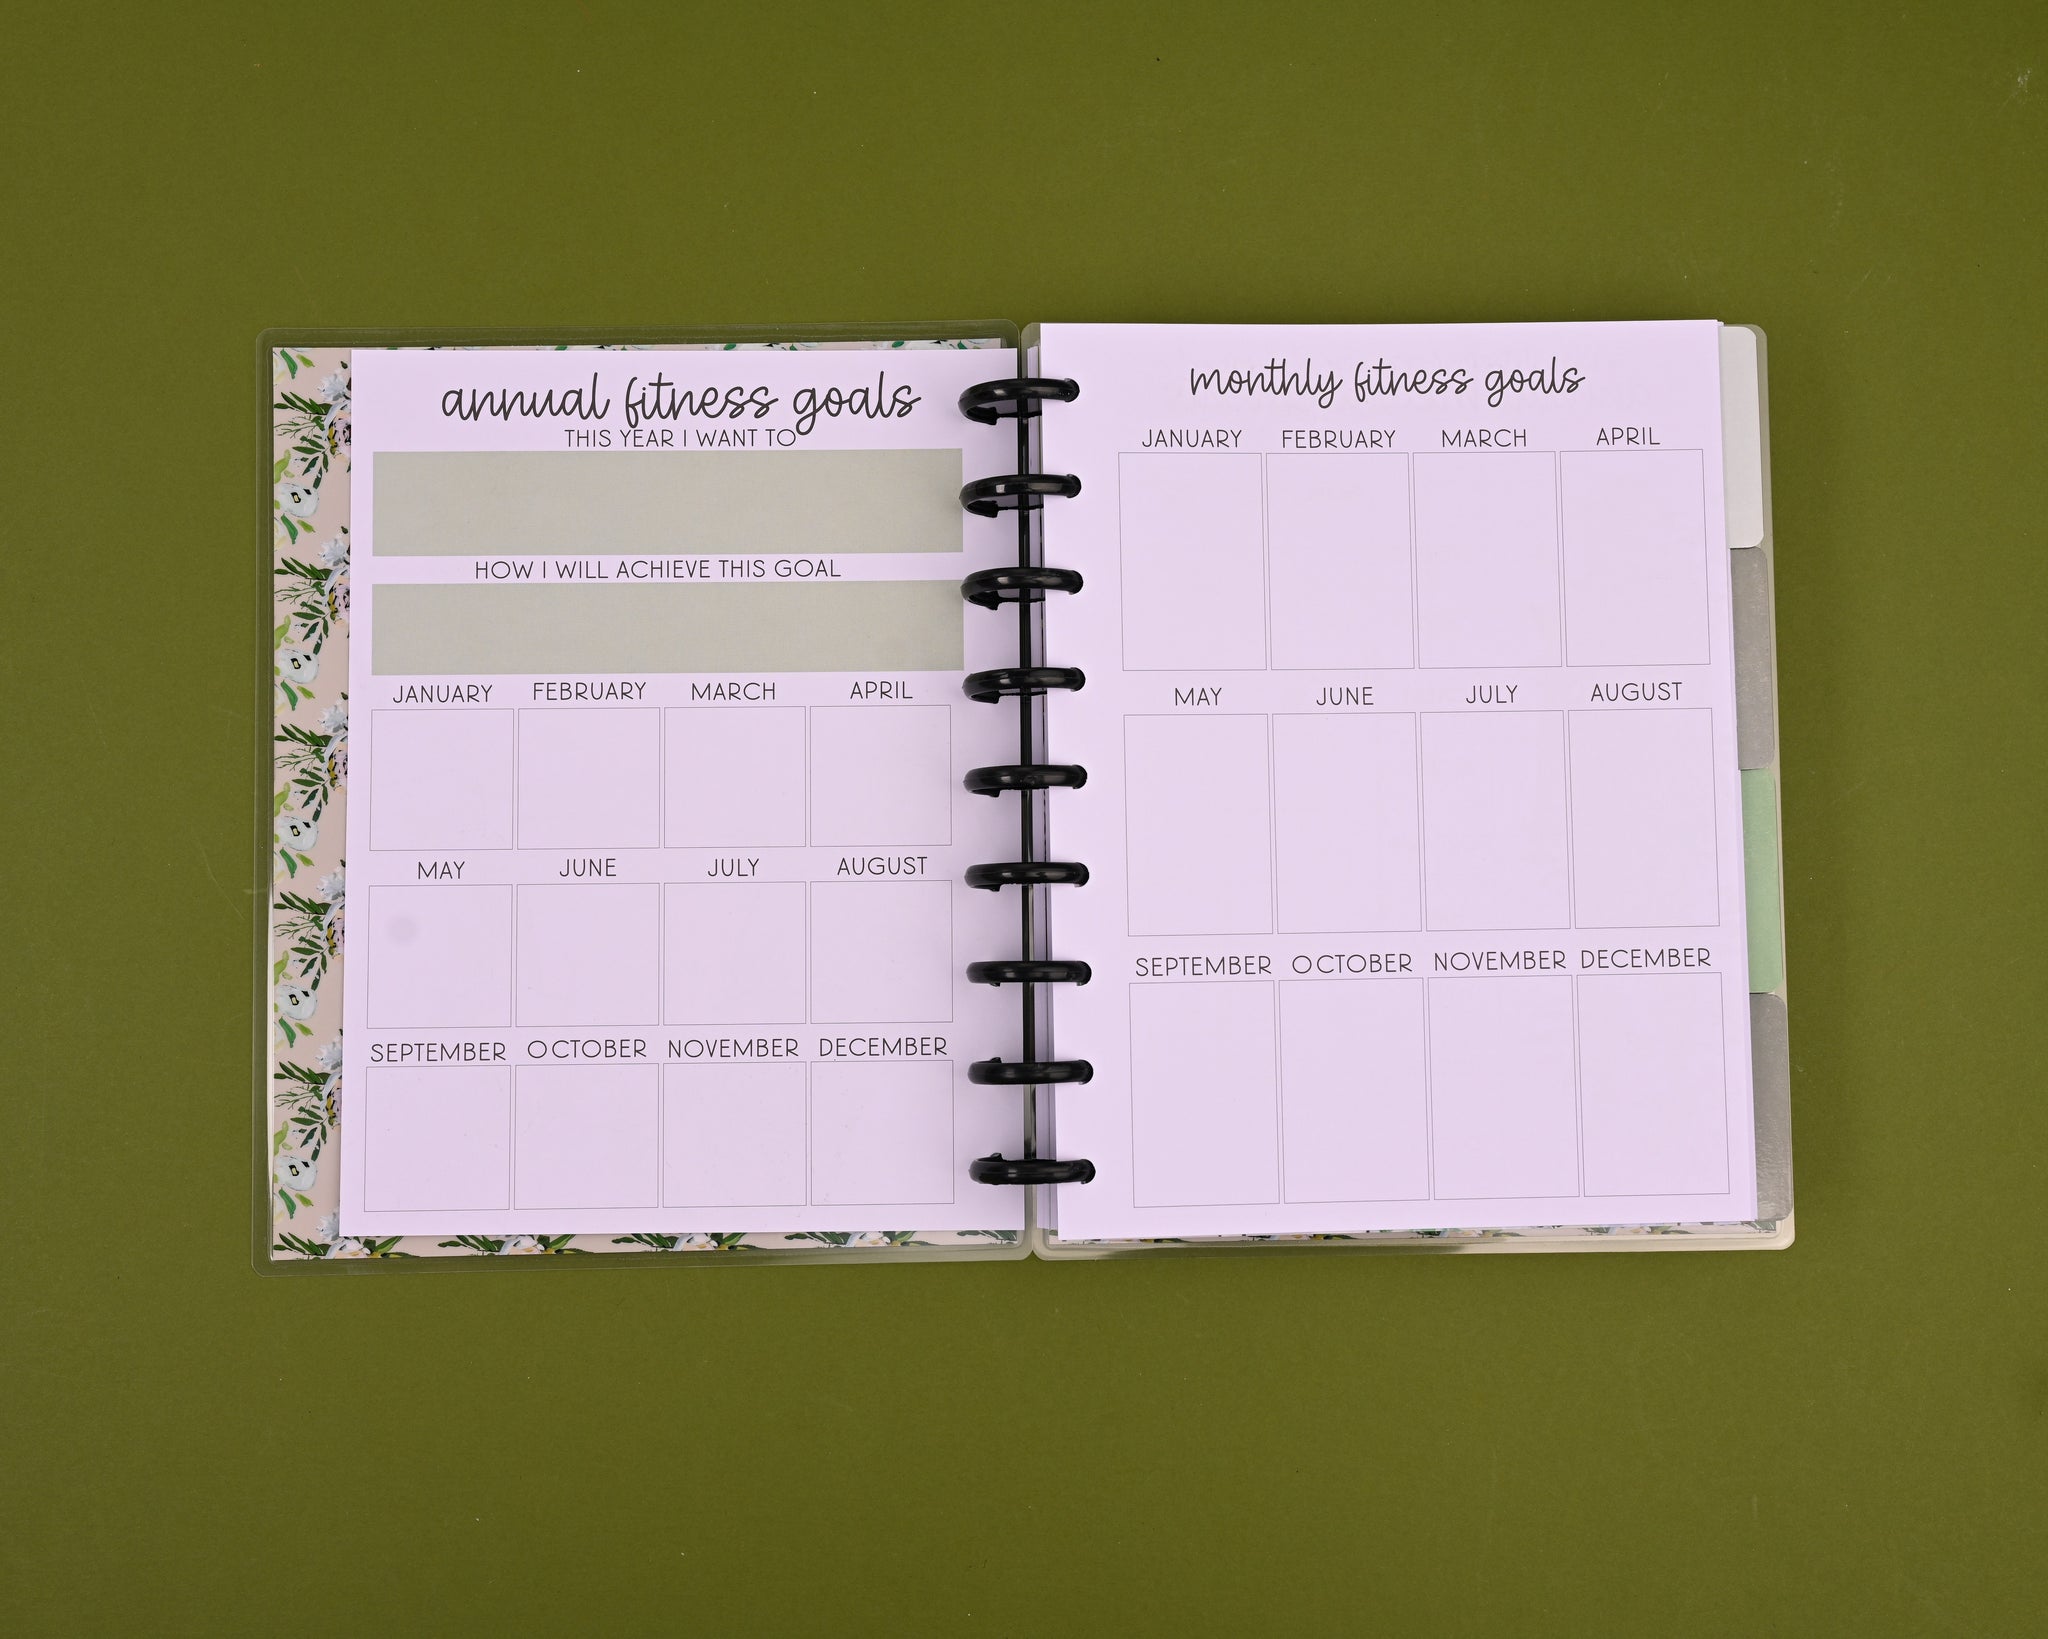 annual fitness goals
THIS YEAR I WANT TO
HOW I WILL ACHIEVE THIS GOAL
JANUARY FEBRUARY MARCH APRIL
MAY JUNE JULY AUGUST
SEPTEMBER OCTOBER NOVEMBER DECEMBER
monthly fitness goals
JANUARY FEBRUARY MARCH APRIL
MAY JUNE JULY AUGUST
SEPTEMBER OCTOBER NOVEMBER DECEMBER